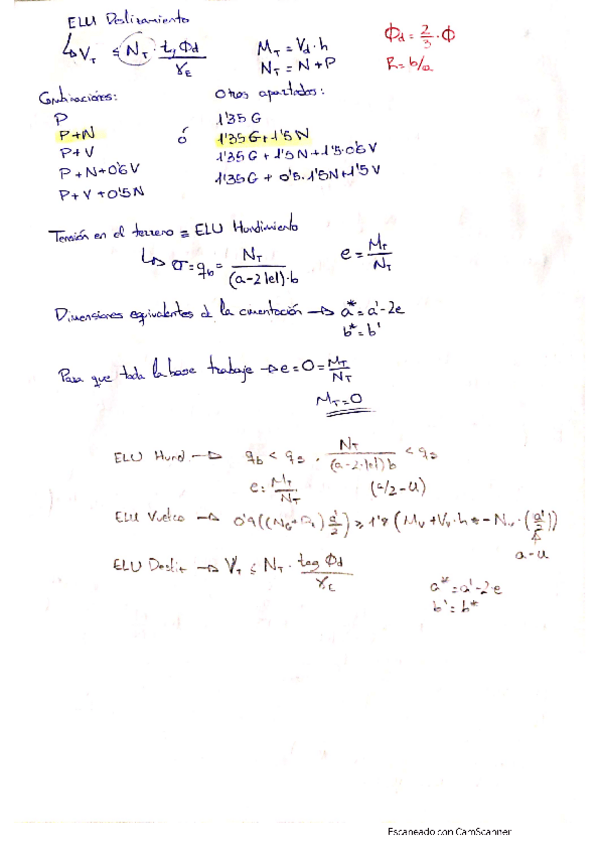 ELU Deslizamiento
↳ V_T ≤ N_T · tg Φd / γ_E
M_T = V_d · h
N_T = N + P
Φd = 2/3 · Φ
R = b/a
Combinaciones:
Otros apartados:
P
1'35 G
P+N
ó
1'35 G + 1'5 N
P+V
1'35 G + 1'5 N + 1'5·0'6 V
P+N+0'6 V
1'35 G + 0'5·1'5 N + 1'5 V
P+V+0'5 N
Tensión en el terreno ≡ ELU Hundimiento
↳ σ = q_b = N_T / (a-2|e|)·b
e = M_T / N_T
Dimensiones equivalentes de la cimentación → a* = a'-2e
b* = b'
Para que toda la base trabaje → e = 0 = M_T / N_T
M_T = 0
ELU Hund → q_b < q_s , N_T / (a-2·|e|) b < q_s
e: M_T / N_T
(a/2 - u)
ELU Vuelco →
a-u
ELU Desliz → V_T ≤ N_T · tag Φd / γ_E
a* = a'-2·e
b' = b*
Escaneado con CamScanner